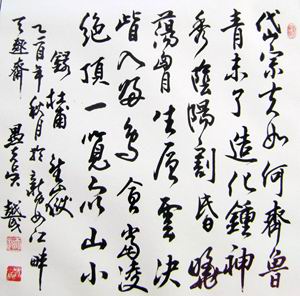 岱宗夫如何齊魯
青未了造化鍾神
秀陰陽割昏曉
蕩胸生層雲決
眥入歸鳥會當凌
絕頂一覽衆山小
錄杜甫望嶽
乙酉年秋月於新安江畔
齋